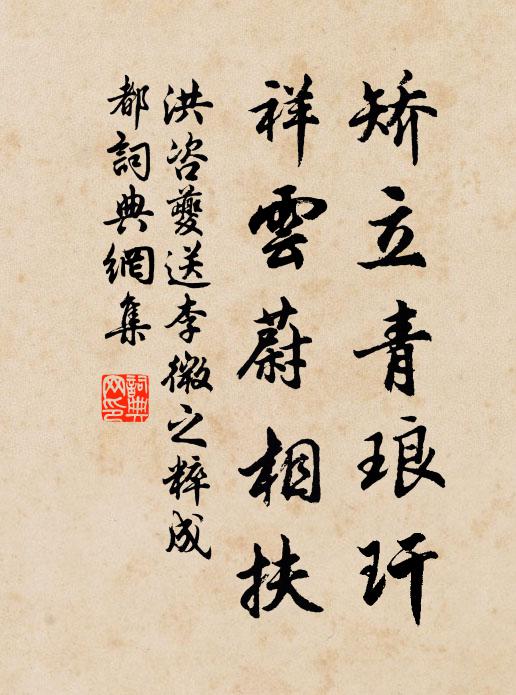 矫立青琅玕
祥雲蔚相扶
洪咨夔送李微之粹成
都詞典網集
詞典网印